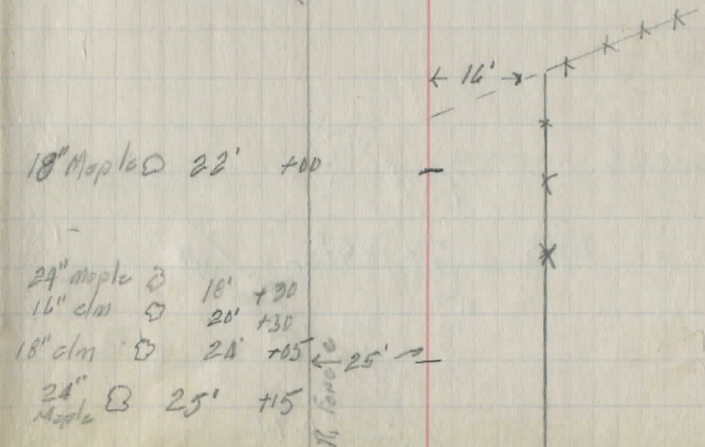 ← 16' →
18" Maple 22' +00
24" maple 18' +90
16" elm 20' +30
18" elm 24' +05
← 25' →
24" Maple 25' +15